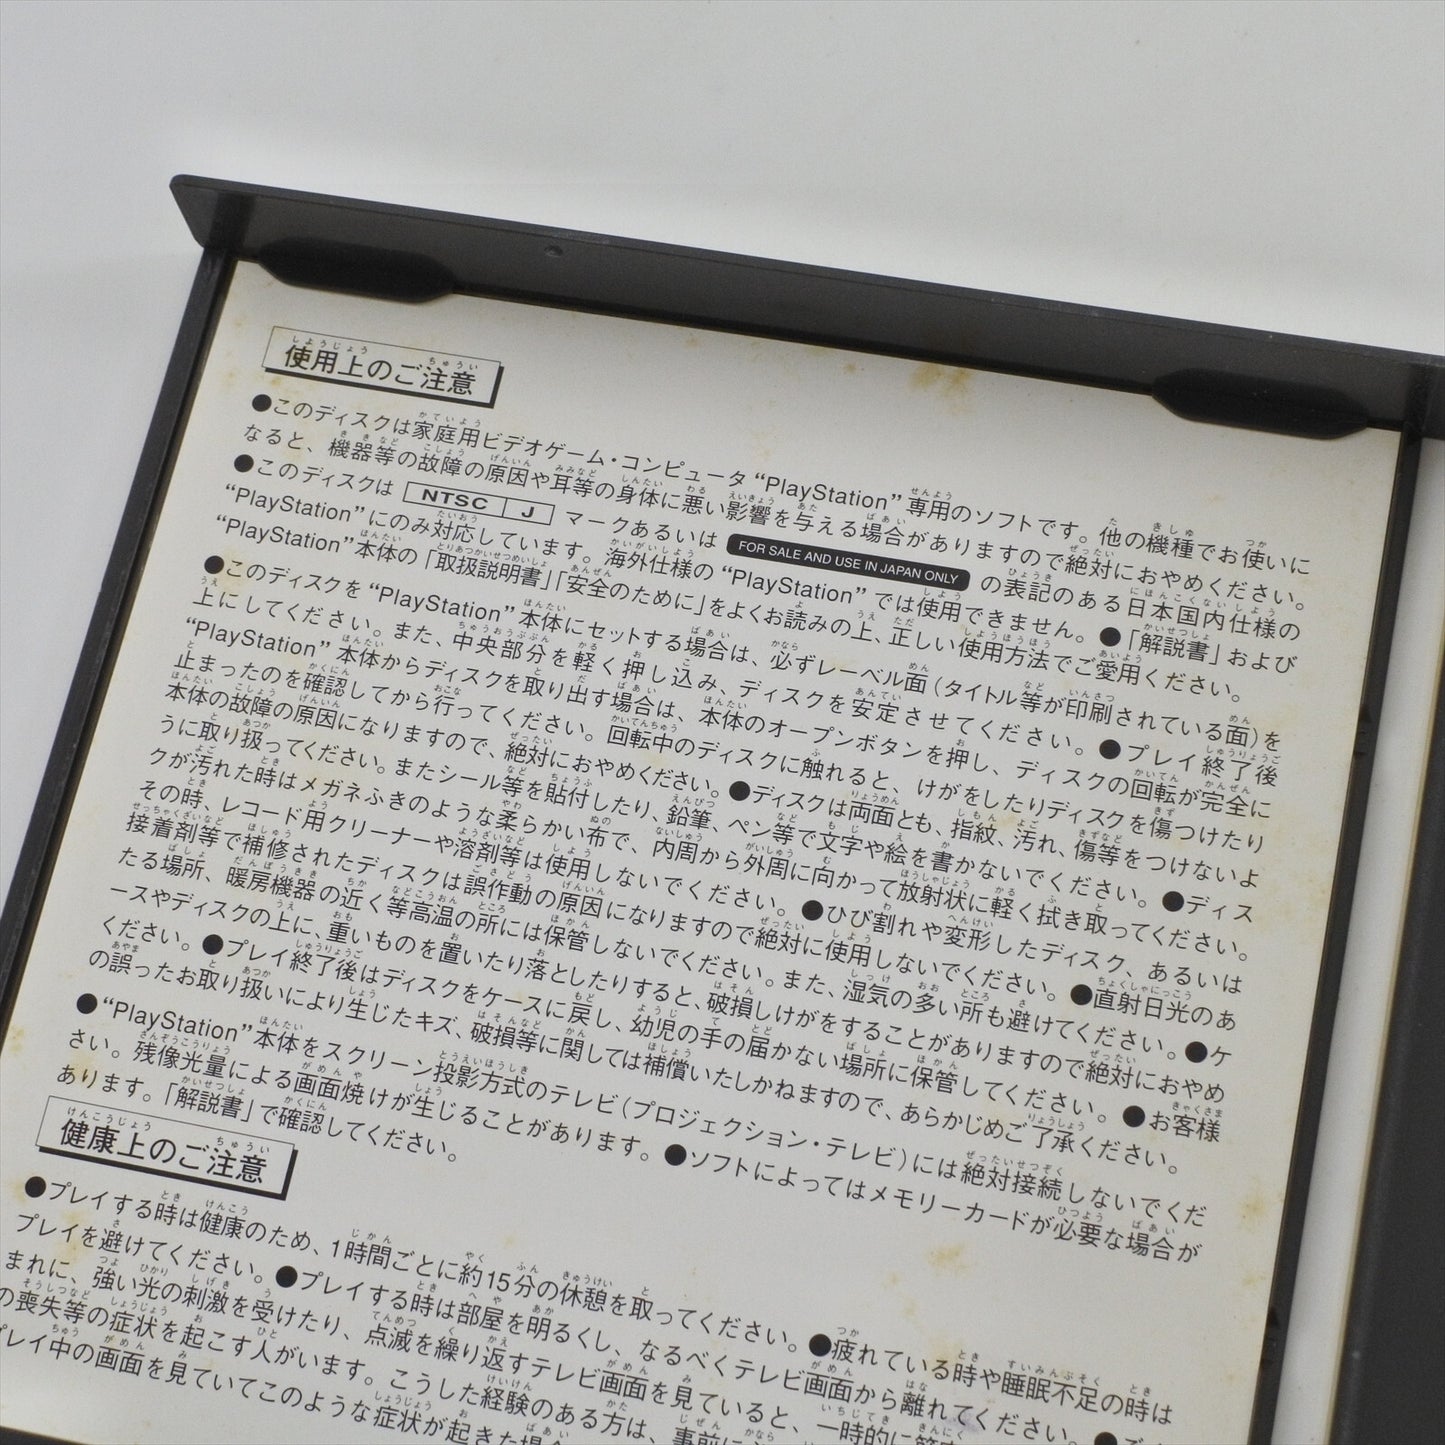 使用上のご注意
●このディスクは家庭用ビデオゲーム・コンピュータ“PlayStation”専用のソフトです。他の機種でお使いに
なると、機器等の故障の原因や耳等の身体に悪い影響を与える場合がありますので絶対におやめください。
●このディスクは NTSC J マークあるいは FOR SALE AND USE IN JAPAN ONLY の表記のある日本国内仕様の
“PlayStation”にのみ対応しています。海外仕様の“PlayStation”では使用できません。●「解説書」および
“PlayStation”本体の「取扱説明書」「安全のために」をよくお読みの上、正しい使用方法でご愛用ください。
●このディスクを“PlayStation”本体にセットする場合は、必ずレーベル面(タイトル等が印刷されている面)を
上にしてください。また、中央部分を軽く押し込み、ディスクを安定させてください。●プレイ終了後
“PlayStation”本体からディスクを取り出す場合は、本体のオープンボタンを押し、ディスクの回転が完全に
止まったのを確認してから行ってください。回転中のディスクに触れると、けがをしたりディスクを傷つけたり
本体の故障の原因になりますので、絶対におやめください。●ディスクは両面とも、指紋、汚れ、傷等をつけないよ
うに取り扱ってください。またシール等を貼付したり、鉛筆、ペン等で文字や絵を書かないでください。●ディス
クが汚れた時はメガネふきのような柔らかい布で、内周から外周に向かって放射状に軽く拭き取ってください。
その時、レコード用クリーナーや溶剤等は使用しないでください。●ひび割れや変形したディスク、あるいは
接着剤等で補修されたディスクは誤作動の原因になりますので絶対に使用しないでください。●直射日光のあ
たる場所、暖房機器の近く等高温の所には保管しないでください。また、湿気の多い所も避けてください。●ケ
ースやディスクの上に、重いものを置いたり落としたりすると、破損しけがをすることがありますので絶対におやめ
ください。●プレイ終了後はディスクをケースに戻し、幼児の手の届かない場所に保管してください。●お客様
の誤ったお取り扱いにより生じたキズ、破損等に関しては補償いたしかねますので、あらかじめご了承ください。
●“PlayStation”本体をスクリーン投影方式のテレビ(プロジェクション・テレビ)には絶対接続しないでくだ
さい。残像光量による画面焼けが生じることがあります。●ソフトによってはメモリーカードが必要な場合が
あります。「解説書」で確認してください。
健康上のご注意
●プレイする時は健康のため、1時間ごとに約15分の休憩を取ってください。●疲れている時や睡眠不足の時は
プレイを避けてください。●プレイする時は部屋を明るくし、なるべくテレビ画面から離れてください。●ご
まれに、強い光の刺激を受けたり、点滅を繰り返すテレビ画面を見ていると、一時的に
の喪失等の症状を起こす人がいます。こうした経験のある方は、事前に
プレイ中の画面を見ていてこのような症状が起きた場合